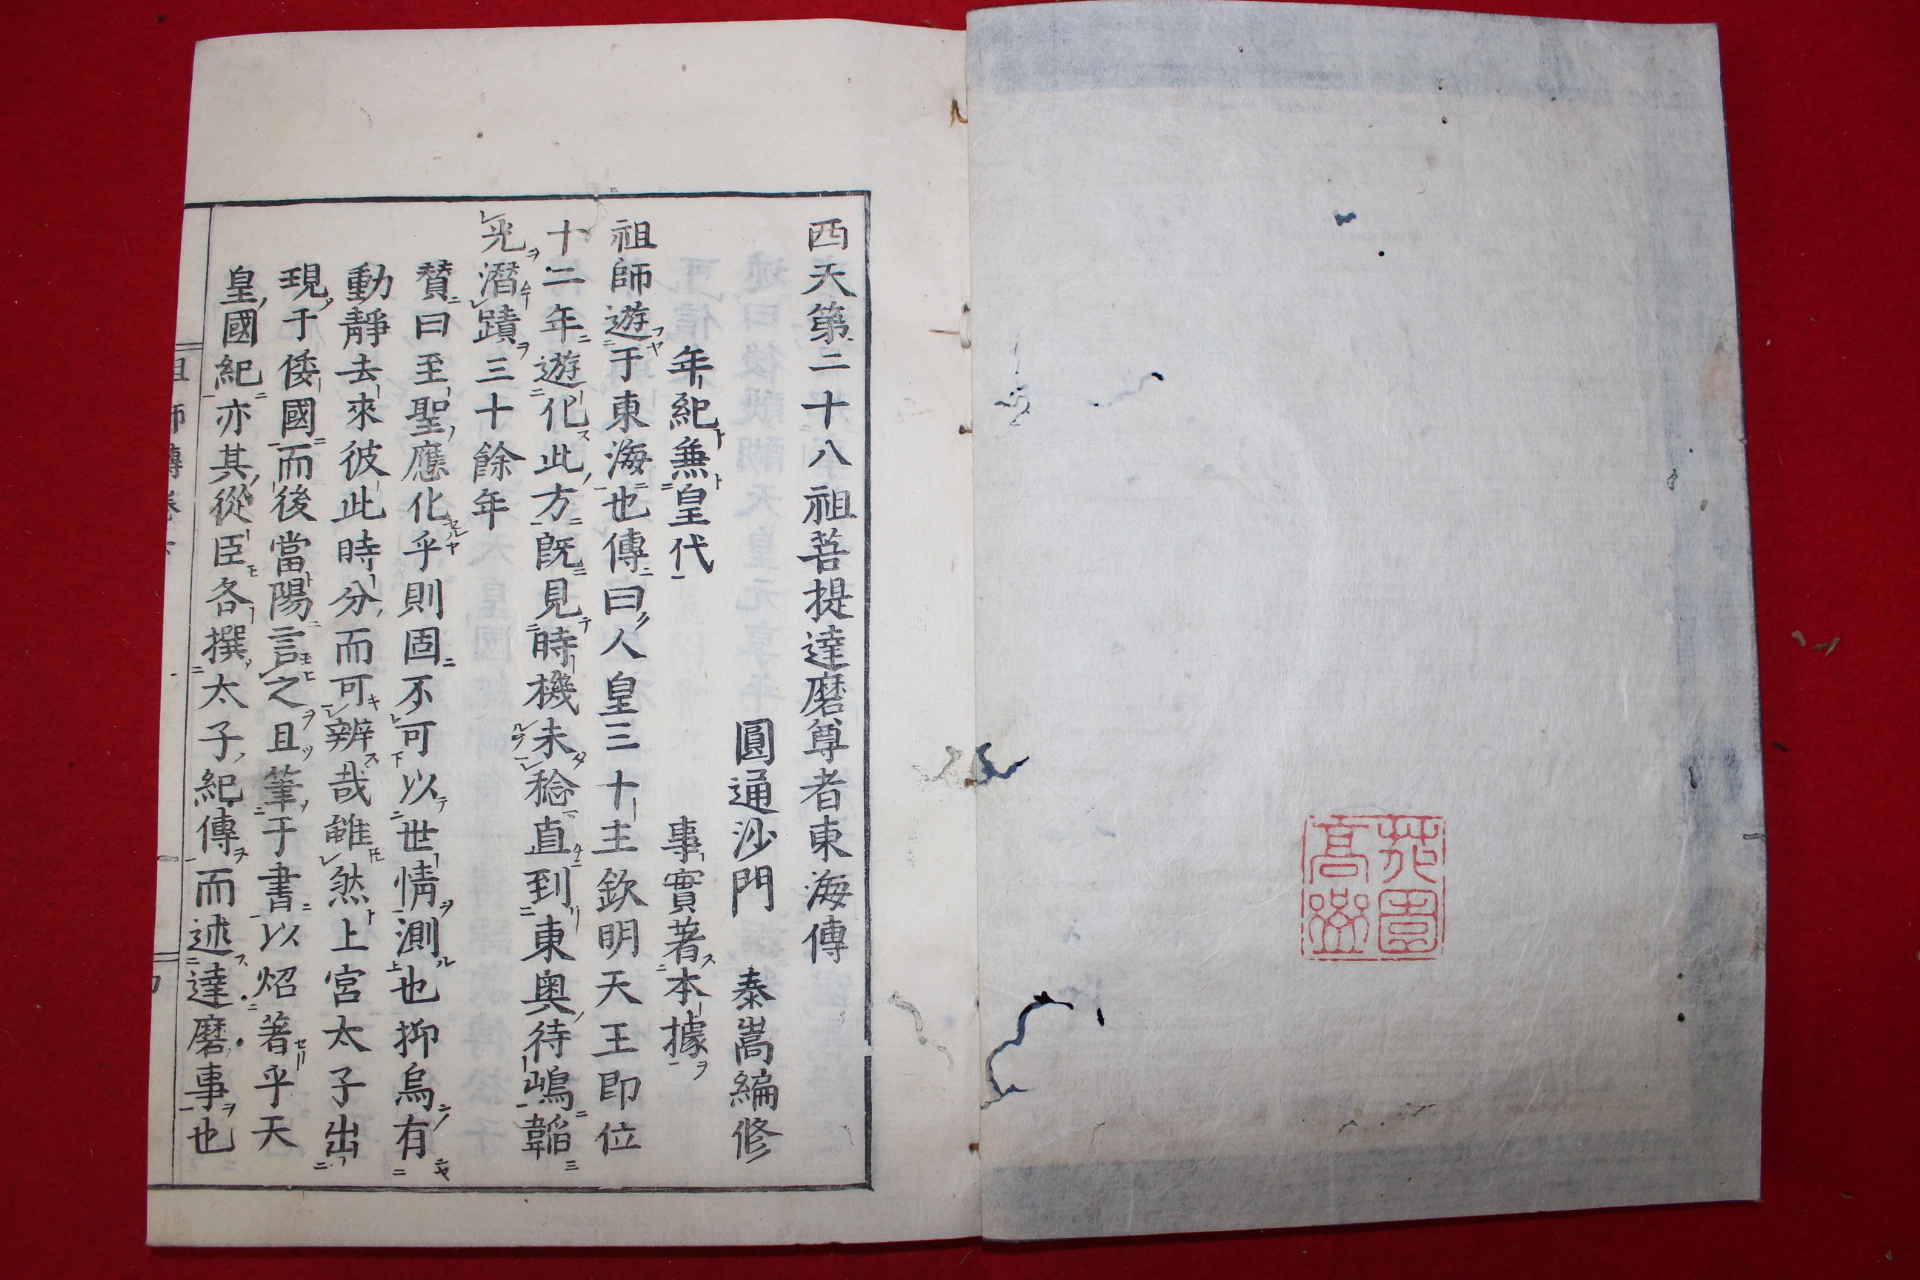 西天第二十八祖菩提達磨尊者東海傳
圓通沙門 泰嵩編修
年紀兼皇代 事實著本據
祖師遊于東海也傳曰人皇三十主欽明天王即位
十二年遊化此方既見時機未稔直到東奥待嶋韜
光潛蹟三十餘年
賛曰至聖應化乎則固不可以世情測也抑烏有
動靜去來彼此時分而可辨哉雖然上宮太子出
現于倭國而後當陽言之且筆于書以炤著乎天
皇國紀亦其從臣各撰太子紀傳而述達磨事也